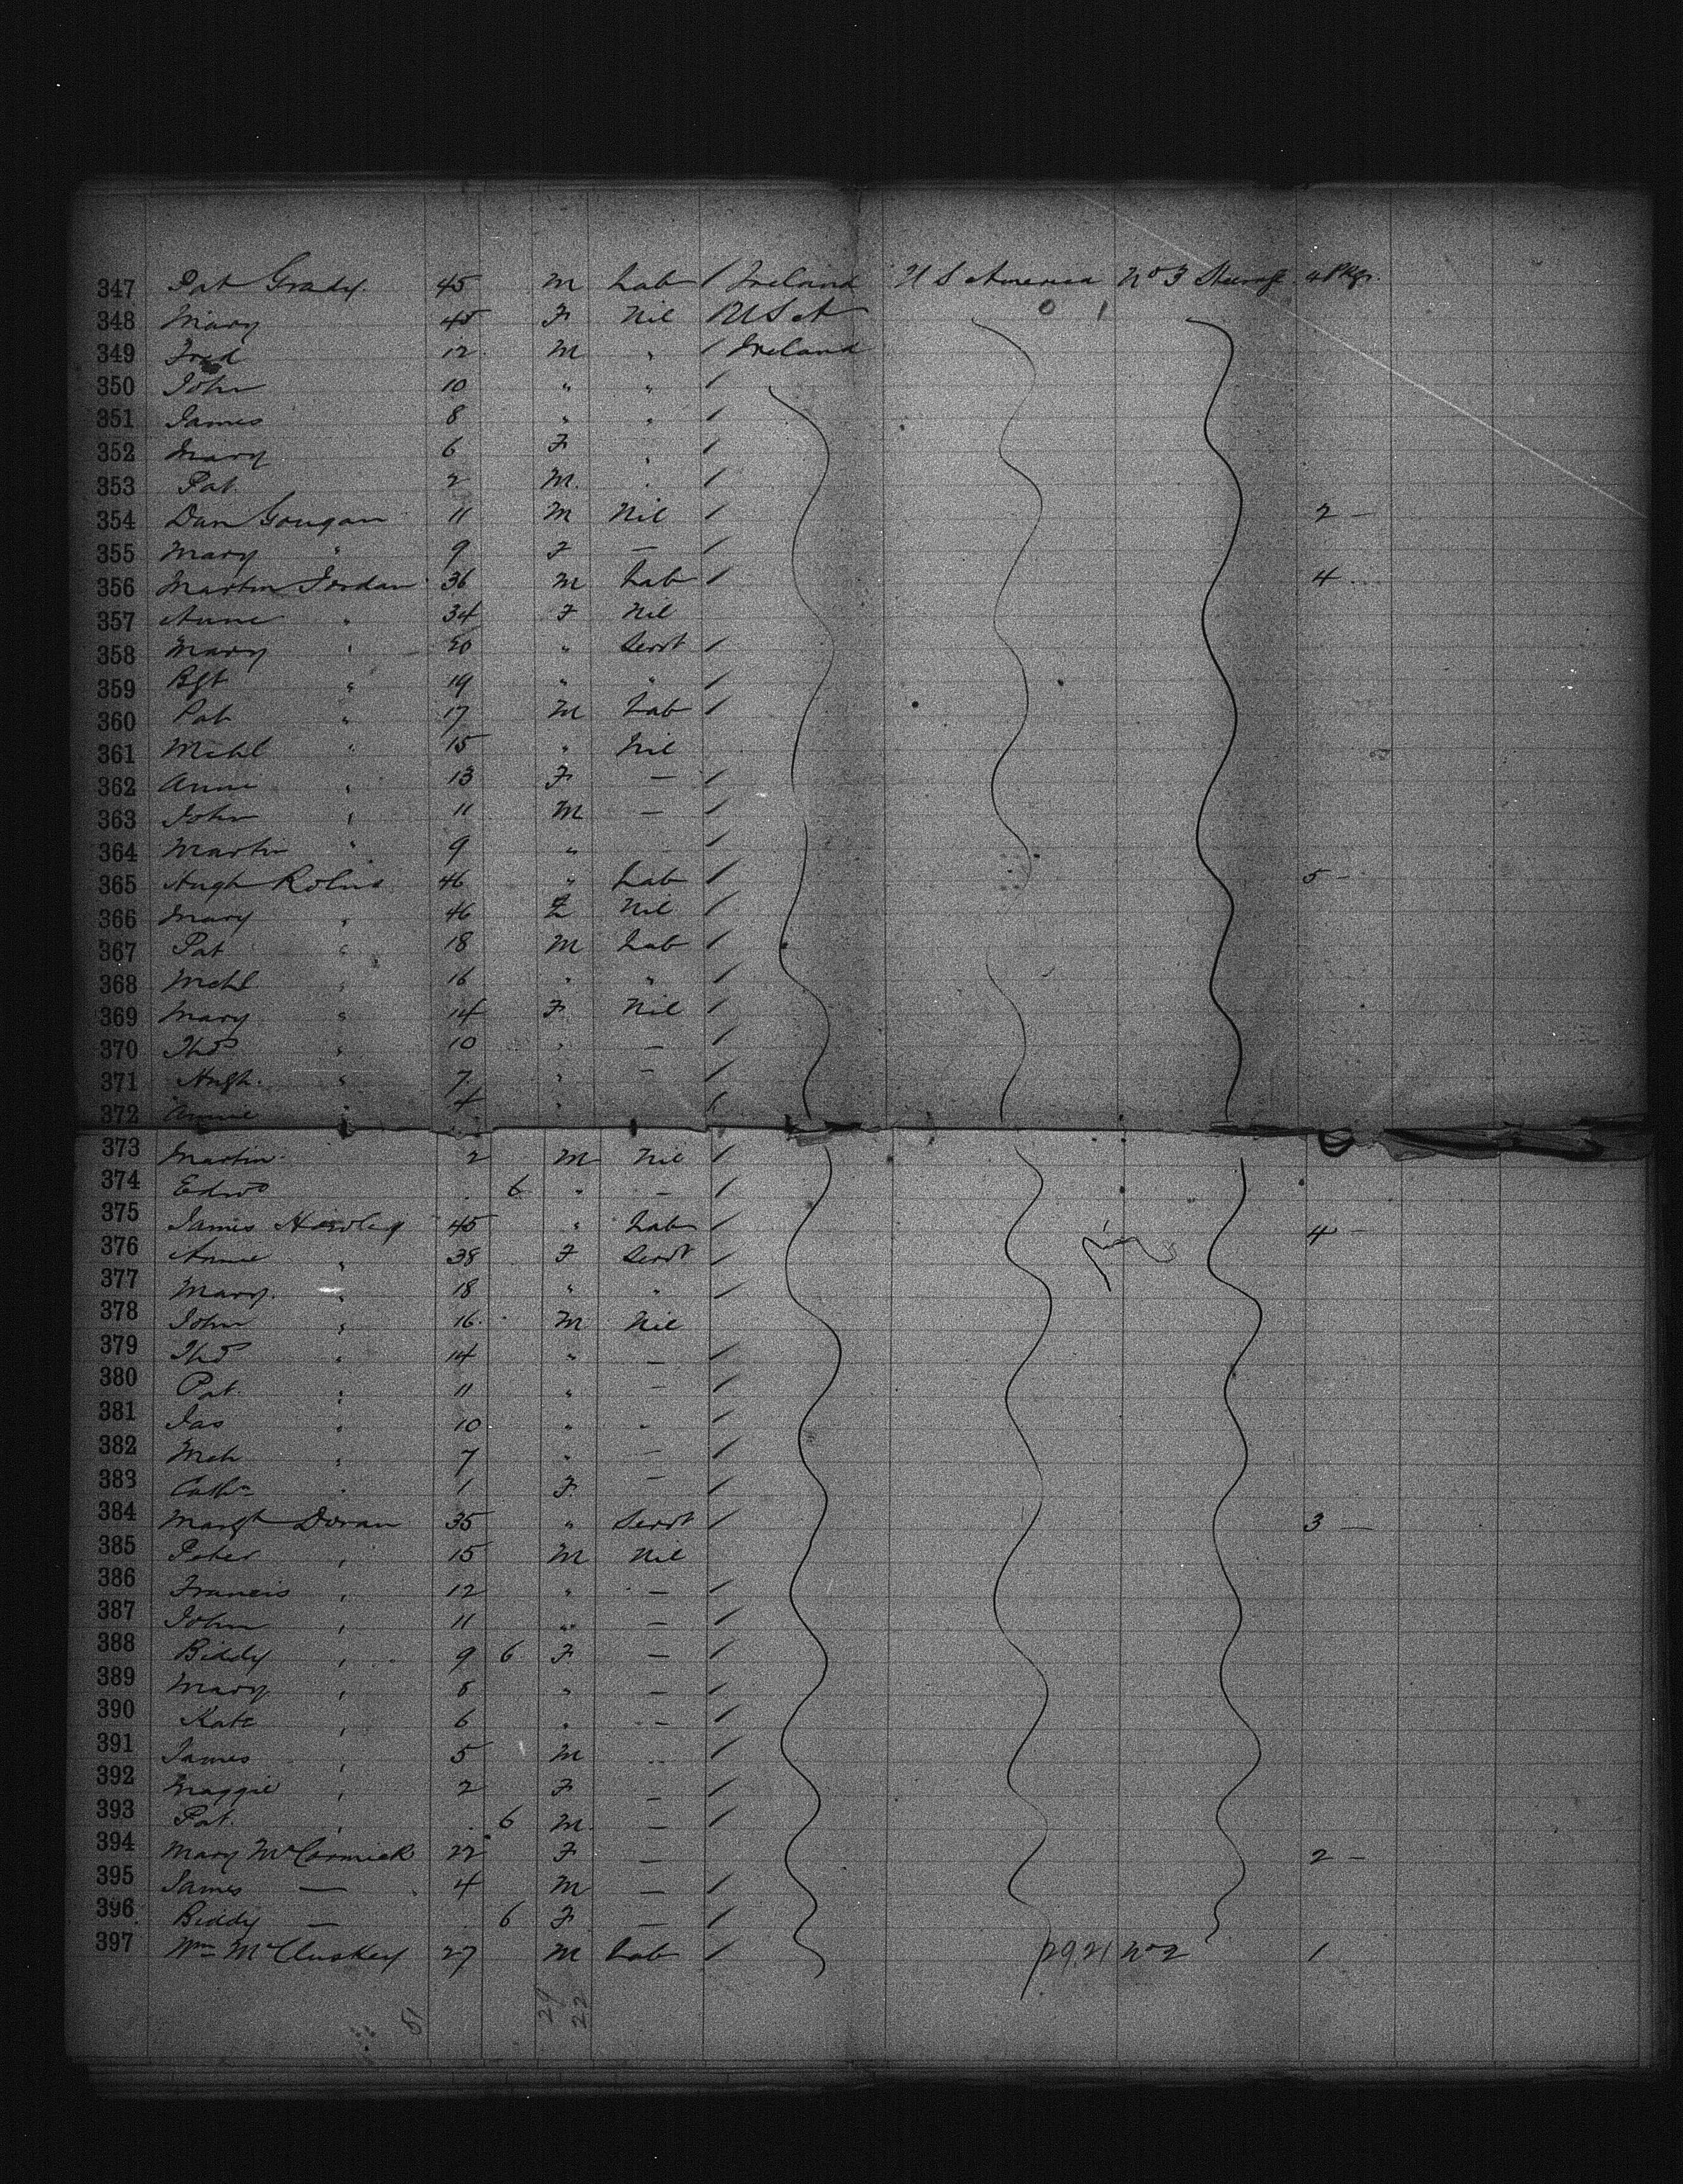 347 Pat Grady 45 M Lab / Ireland U S America No 3 Steerage 4 Pkgs.
348 Mary 45 F Nil / U S A 0 1
349 Fred 12 M " / Ireland
350 John 10 " " /
351 James 8 " " /
352 Mary 6 F " /
353 Pat 2 M. " /
354 Dan Gougan 11 M Nil / 2 —
355 Mary " 9 F — /
356 Martin Jordan 36 M Lab / 4
357 Anne " 34 F Nil
358 Mary " 20 " Servt /
359 Bgt " 19 " " /
360 Pat " 17 M Lab /
361 Michl " 15 " Nil
362 Annie " 13 F — /
363 John " 11 M — /
364 Martin " 9 " - /
365 Hugh 46 " Lab / 5 -
366 Mary " 46 F Nil /
367 Pat " 18 M Lab /
368 Michl " 16 " " /
369 Mary " 14 F Nil /
370 Thos " 10 " — /
371 Hugh " 7 " - /
372 Annie " 4 " /
373 Martin 2 M Nil /
374 Edwd 6 " — /
375 James Hawley 45 " Lab / 4 —
376 Annie " 38 F Servt /
377 Mary " 18 " " /
378 John " 16 M Nil
379 Thos " 14 " — /
380 Pat " 11 " — /
381 Jas " 10 " - /
382 Mich " 7 " — /
383 Cathn " 1 F — /
384 Margt Doran 35 " Servt / 3 —
385 Peter " 15 M Nil
386 Francis " 12 " — /
387 John " 11 " — /
388 Biddy " 9 6 F — /
389 Mary " 8 " — /
390 Kate " 6 " — /
391 James " 5 M " /
392 Maggie " 2 F — /
393 Pat " 6 M. — /
394 Mary McCormick 22 F — 2 —
395 James — 4 M — /
396 Biddy — 6 F — /
397 Wm McCluskey 27 M Lab / 29.21 No 2 1
29
22